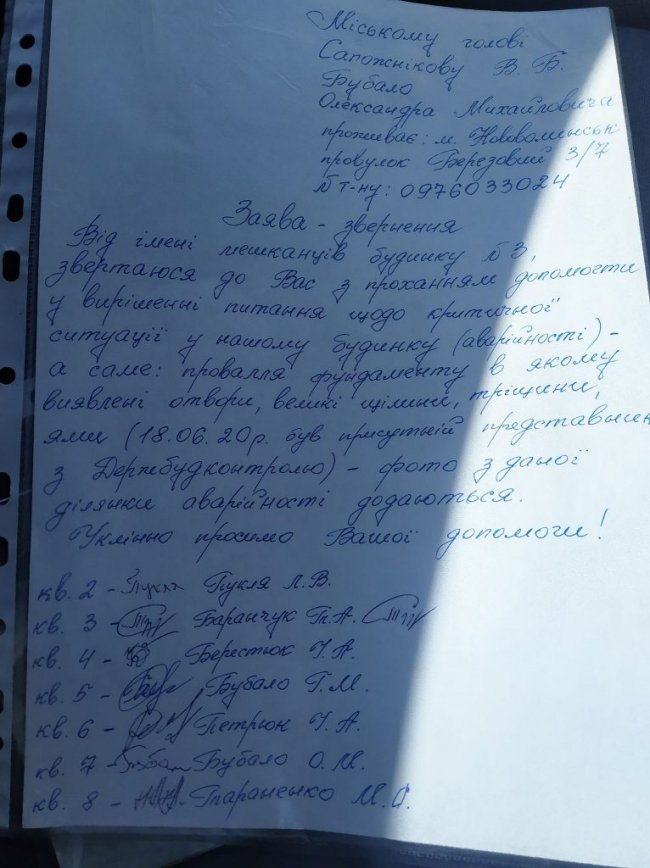 Міському голові
Сапожнікову В. Б.
Бубало
Олександра Михайловича
проживає: м. Нововолинськ
провулок Березовий 3/7
№ т-ну: 0976033024
Заява - звернення
Від імені мешканців будинку №3,
звертаюся до Вас з проханням допомогти
у вирішенні питання щодо критичної
ситуації у нашому будинку (аварійності) -
а саме: провалля фундаменту в якому
виявлені отвори, великі щілини, тріщини,
ями (18.06.20р. був присутній представник
з Держбудконтролю) - фото з даної
ділянки аварійності додаються.
Уклінно просимо Вашої допомоги!
кв. 2 - Пукля Л.В.
кв. 3 - Баранчук Г.А.
кв. 4 - Берестюк І.А.
кв. 5 - Бубало Г.М.
кв. 6 - Петрюк І.А.
кв. 7 - Бубало О.М.
кв. 8 - Тараненко М.О.